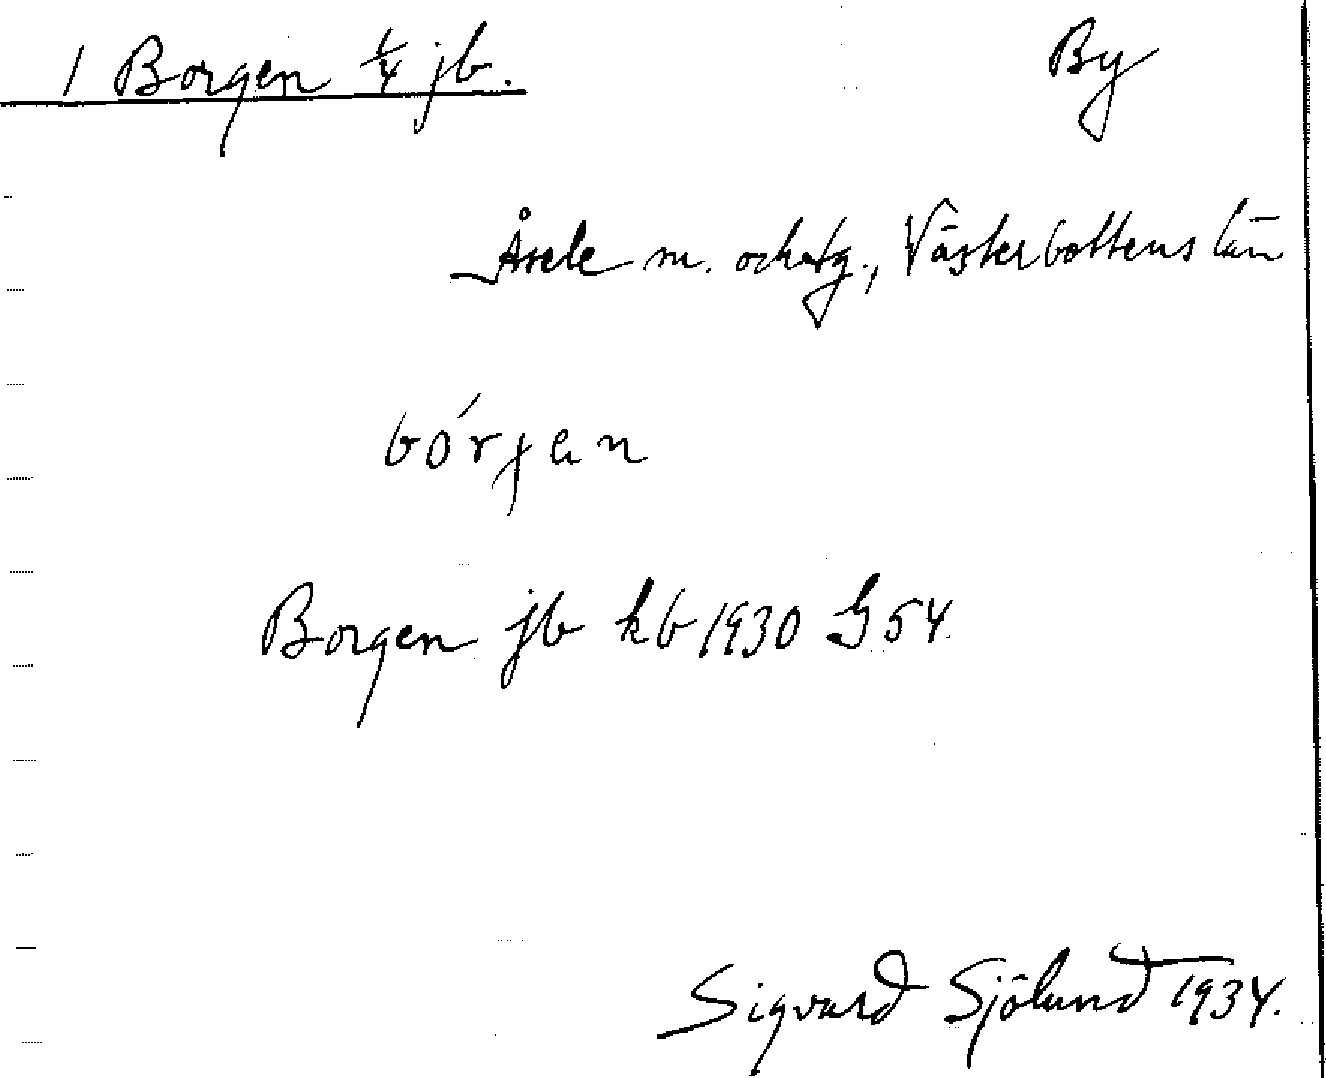 1 Borgen ¼ jb. By
Åsele m. o. hg., Västerbottens län
bórjen
Borgen jb kb 1930 G54.
Sigvard Sjölund 1934.